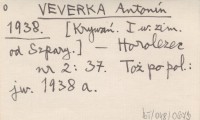 o VEVERKA Antonin
1938. [Krywań. I w. zim.
od Szpary.] — Horolezec
nr 2 : 37. Toż po pol.:
jw. 1938 a.